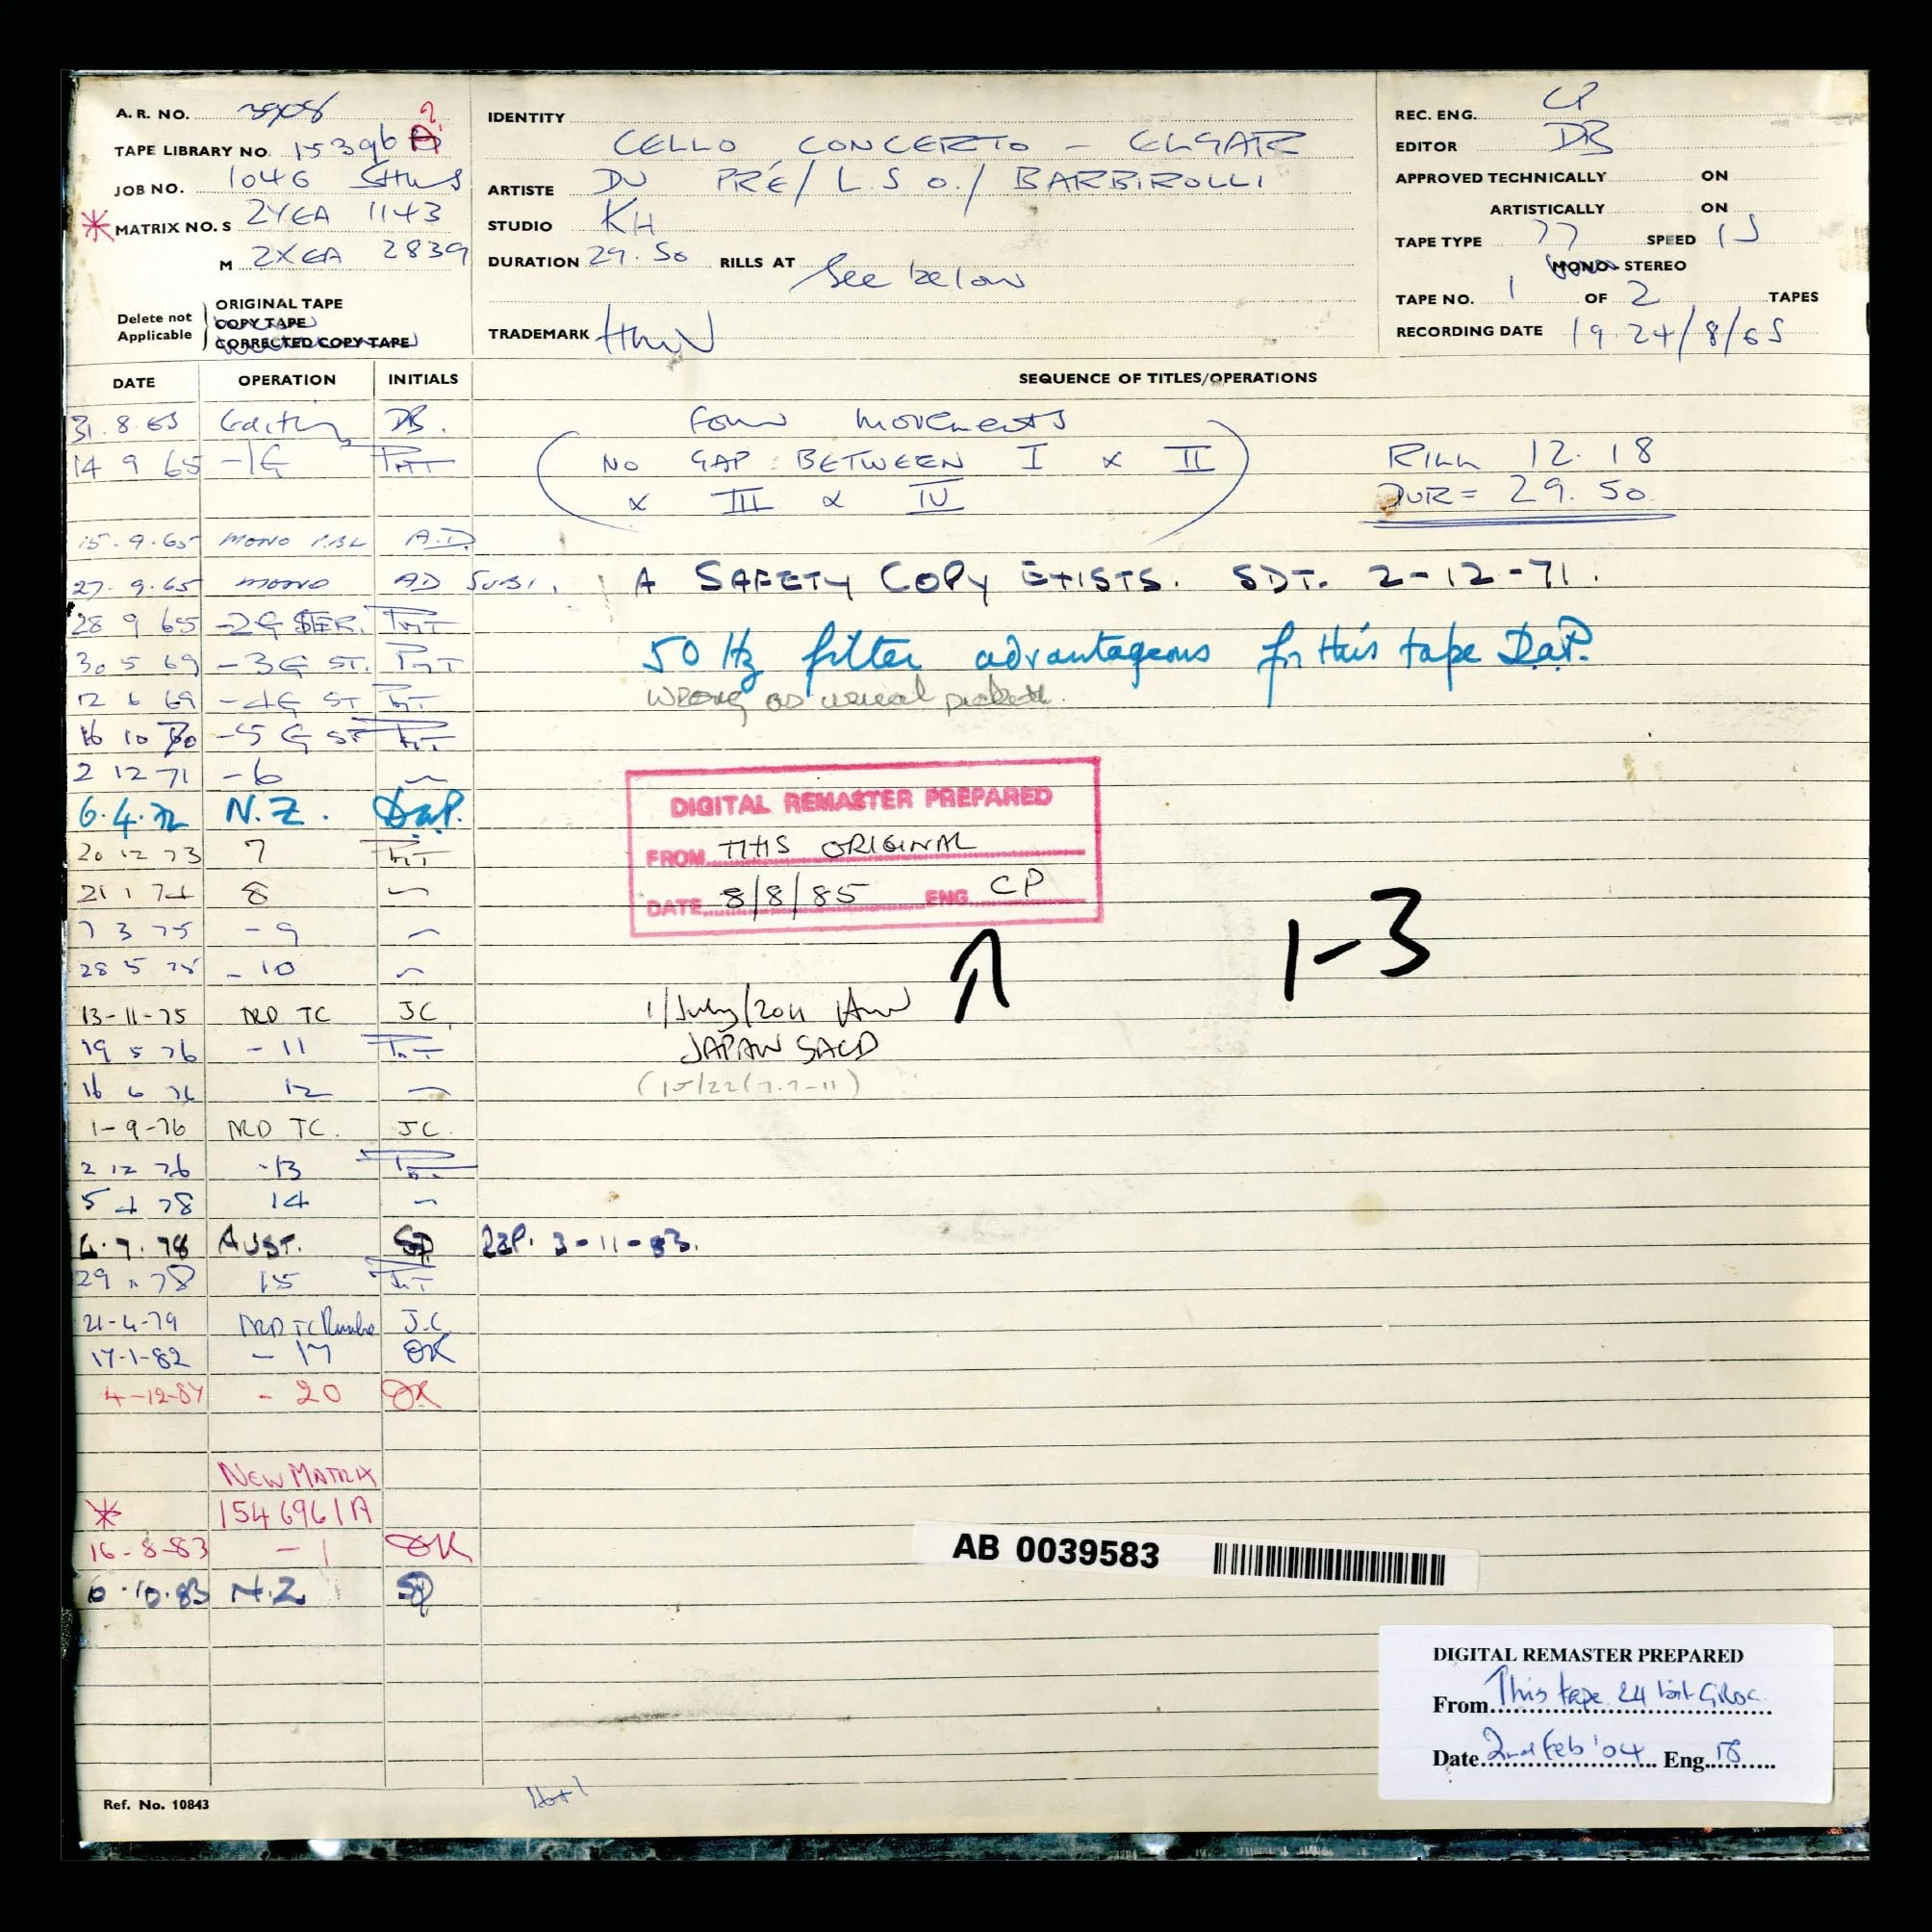 A.R. NO.
TAPE LIBRARY NO. 15396
JOB NO. 1046
* MATRIX NO. S 2YEA 1143
M 2XEA 2839
Delete not Applicable
ORIGINAL TAPE
COPY TAPE
CORRECTED COPY TAPE
IDENTITY
CELLO CONCERTO - ELGAR
ARTISTE DU PRÉ / L.S.O. / BARBIROLLI
STUDIO KH
DURATION 29.50 RILLS AT See below
TRADEMARK HMV
REC. ENG. CP
EDITOR DB
APPROVED TECHNICALLY ON
ARTISTICALLY ON
TAPE TYPE 77 SPEED 15
MONO - STEREO
TAPE NO. 1 OF 2 TAPES
RECORDING DATE 19.24/8/65
DATE OPERATION INITIALS SEQUENCE OF TITLES/OPERATIONS
31.8.65 Editing DB. Four movements
14 9 65 -1G (NO GAP BETWEEN I & II RILL 12.18
& III & IV) DUR = 29.50
15.9.65 MONO A.D.
27.9.65 MONO AD A SAFETY COPY EXISTS. SDT. 2-12-71.
28 9 65 -2G
30 5 69 -3G ST.
50 Hz filter advantageous for this tape D.a.P.
12 6 69 -4G ST
wrong as usual
16 10 70 -5G ST
2 12 71 -6
6.4.72 N.Z. D.a.P.
20 12 73 7
21 1 74 8
7 3 75 -9
28 5 75 -10
DIGITAL REMASTER PREPARED
FROM THIS ORIGINAL
DATE 8/8/85 ENG. CP
1-3
13-11-75 TC JC
1/July/2011
19 5 76 -11
JAPAN SACD
16 6 76 12
1-9-76 TC. JC.
2 12 76 -13
5 4 78 14
6.7.78 AUST. SP 3-11-83.
29 11 78 15
21-4-79 TC J.C
17-1-82 -17 OK
4-12-84 -20 OK
NEW MATRIX
* 1546961A
16-8-83 -1 OK
6.10.83 N.Z. SP
AB 0039583
DIGITAL REMASTER PREPARED
From This tape 24 bit
Date 2nd Feb '04 Eng.
Ref. No. 10843